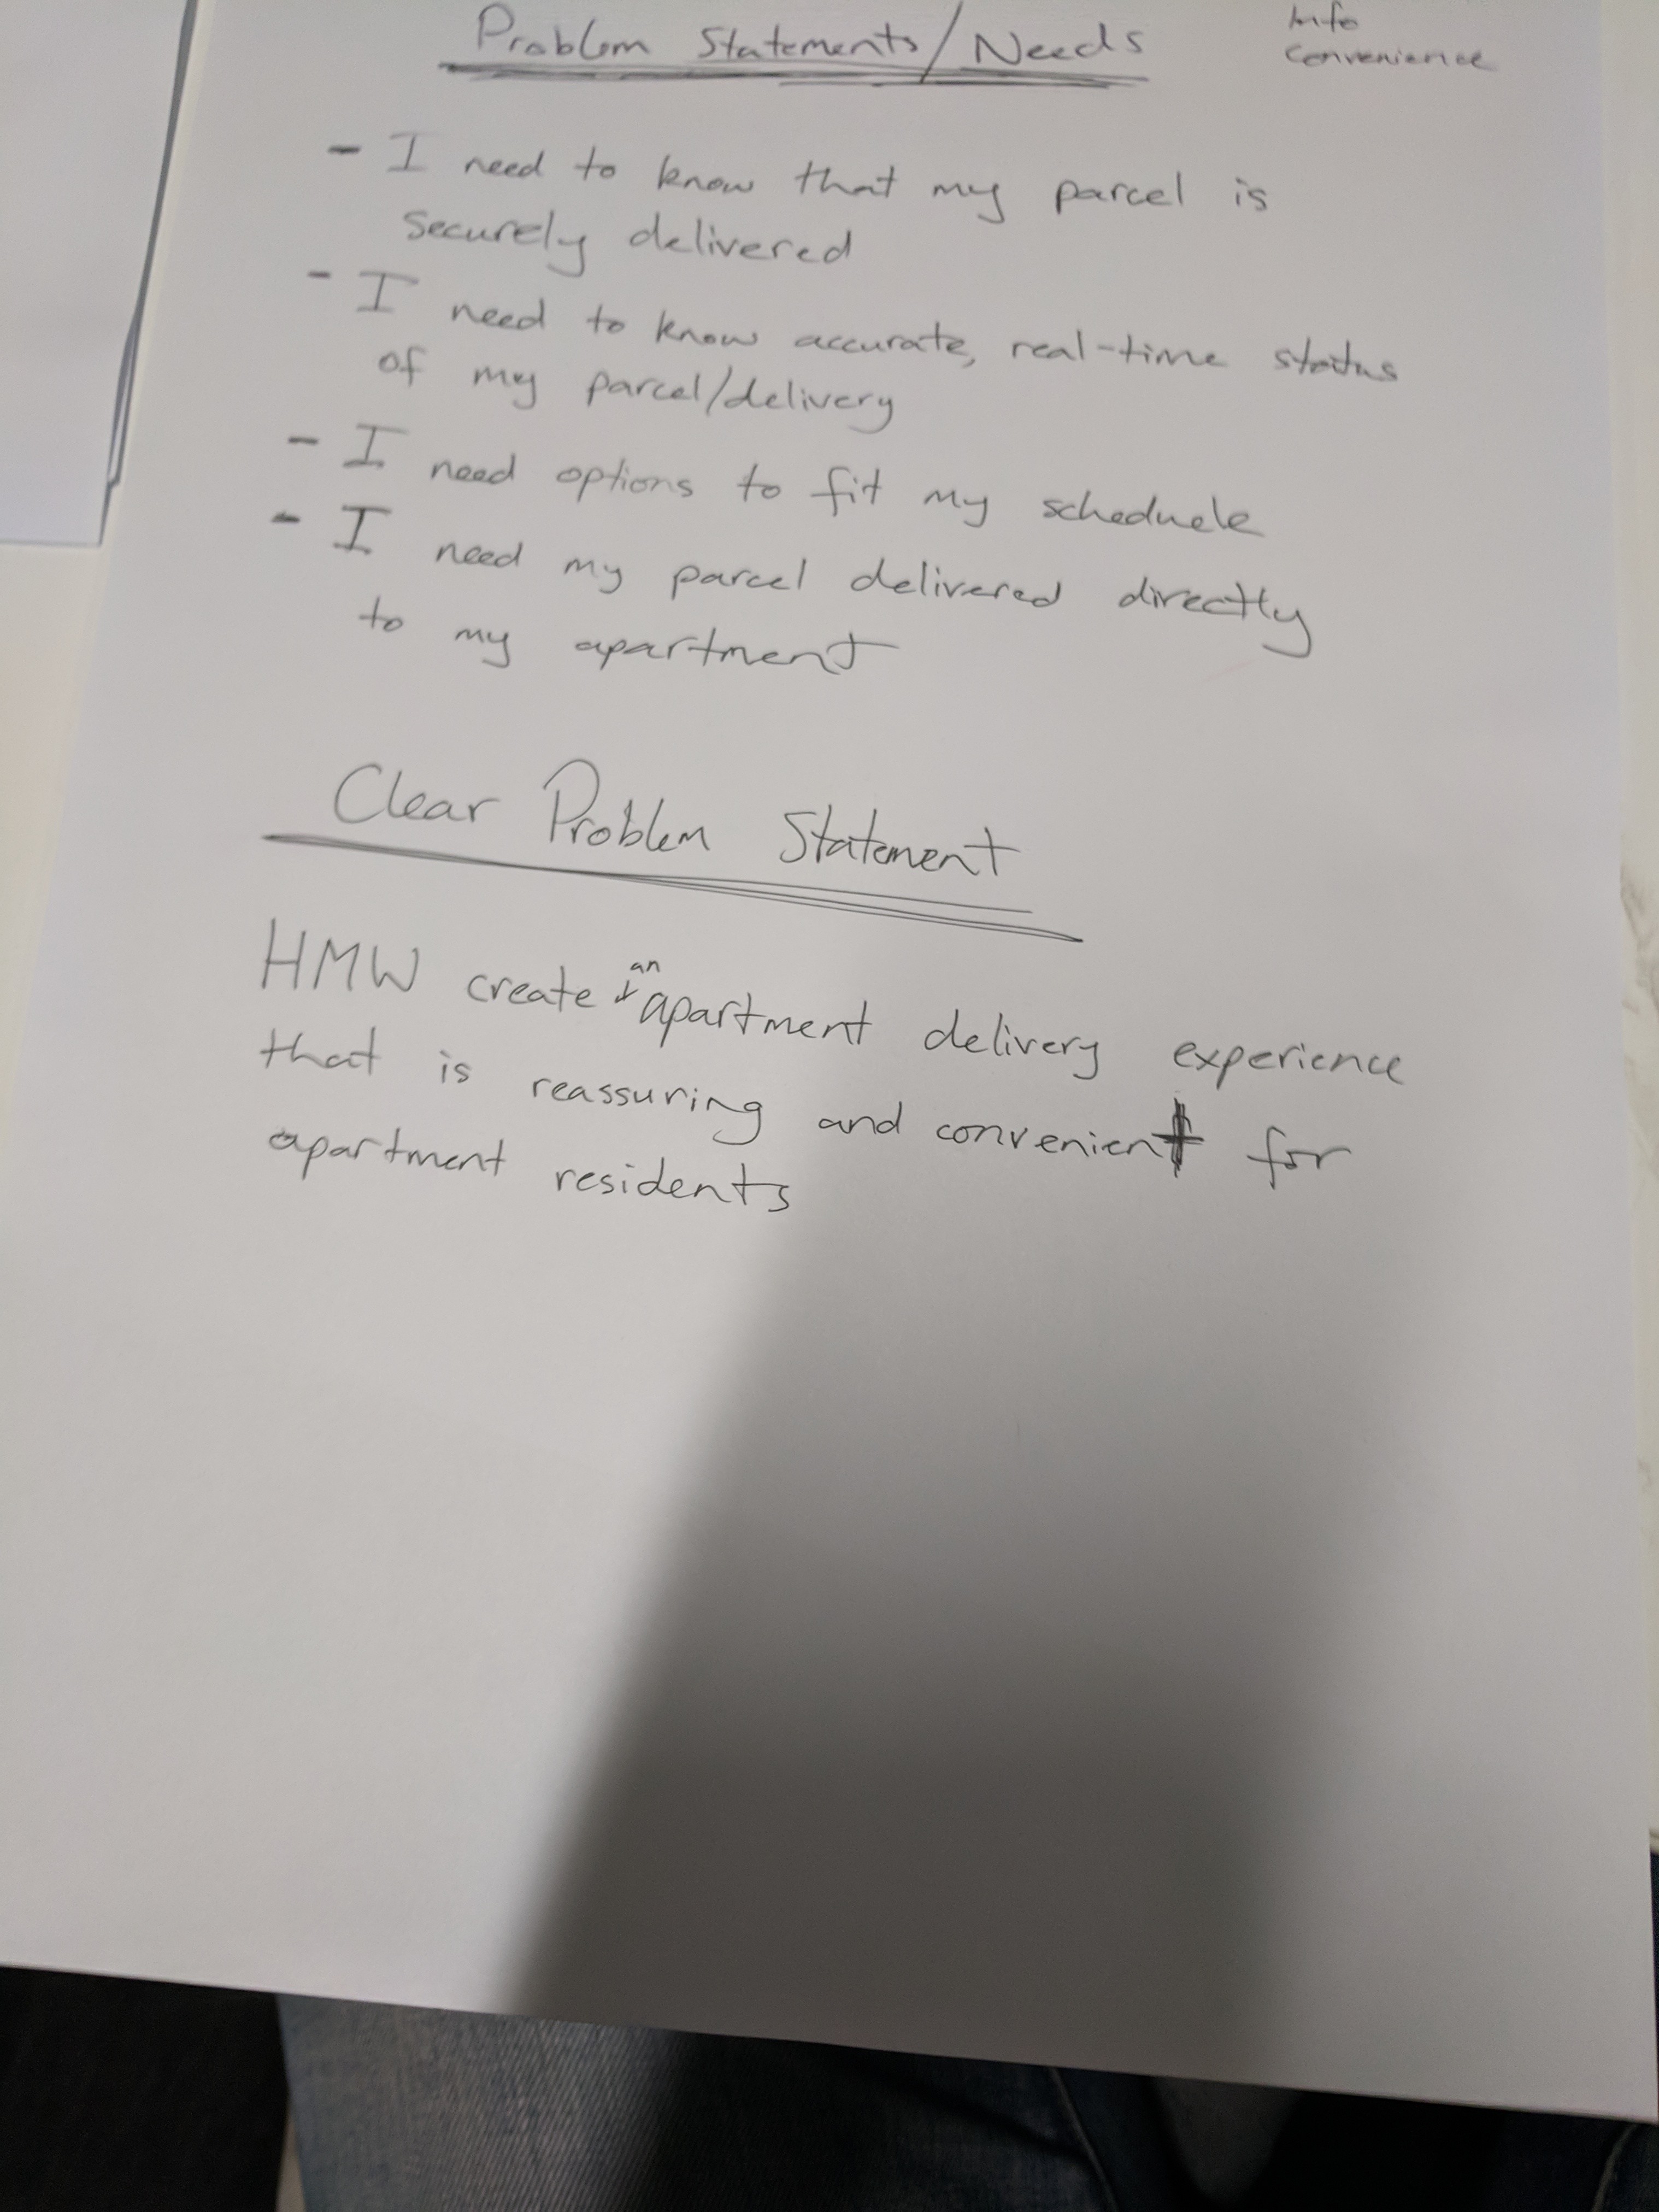 Problem Statements/Needs
Info
Convenience
- I need to know that my parcel is
securely delivered
- I need to know accurate, real-time status
of my parcel/delivery
- I need options to fit my scheduele
- I need my parcel delivered directly
to my apartment
Clear Problem Statement
HMW create an apartment delivery experience
that is reassuring and convenient for
apartment residents